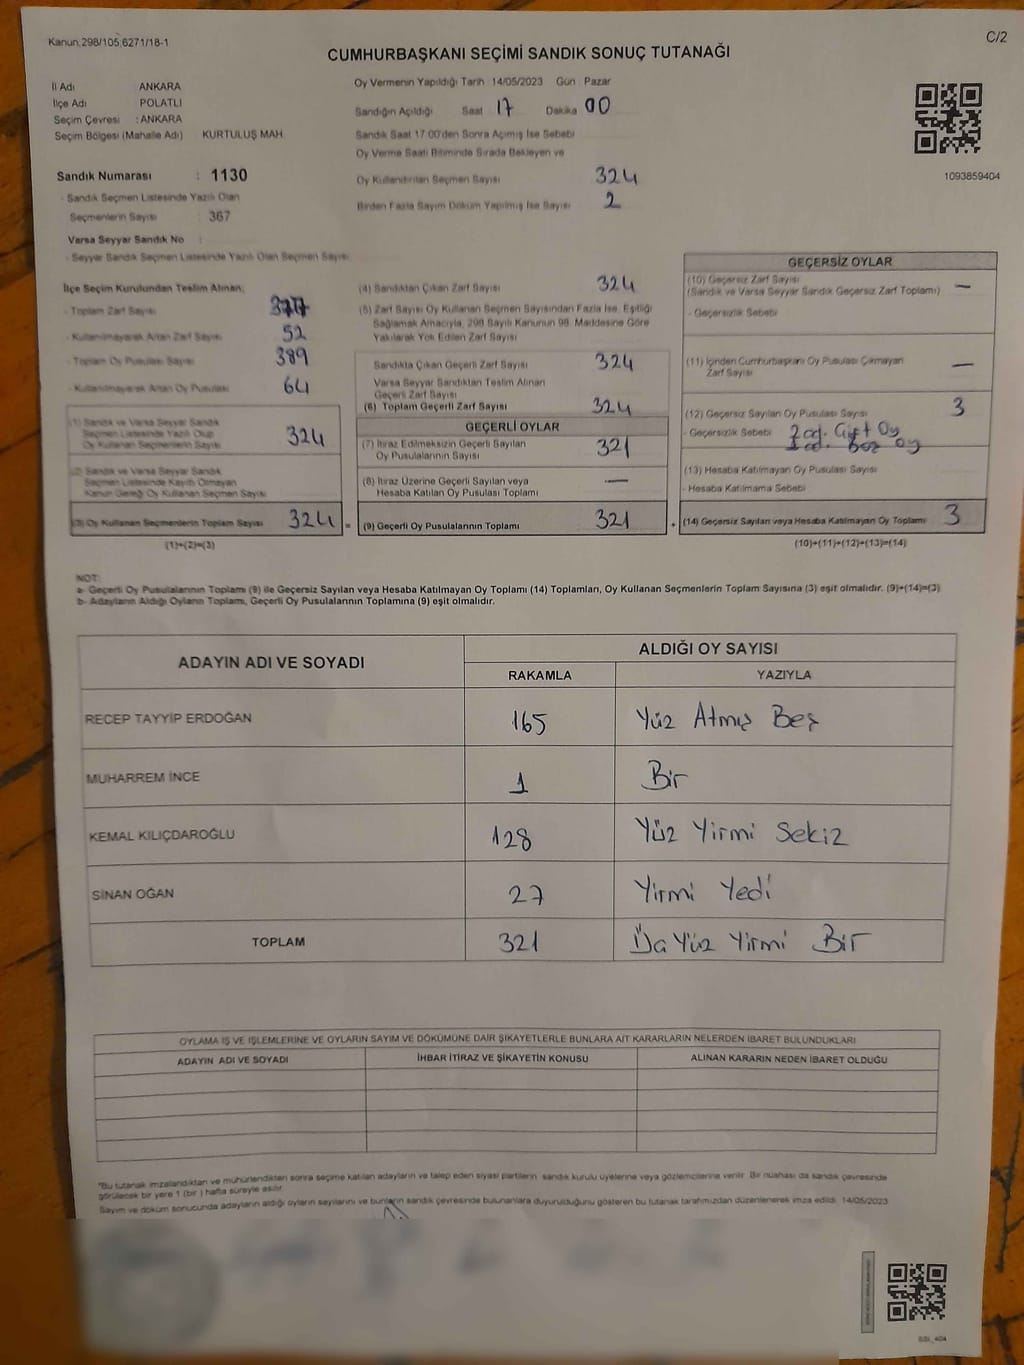 Kanun,298/105,6271/18-1
C/2
CUMHURBAŞKANI SEÇİMİ SANDIK SONUÇ TUTANAĞI
İl Adı ANKARA
İlçe Adı POLATLI
Seçim Çevresi : ANKARA
Seçim Bölgesi (Mahalle Adı) KURTULUŞ MAH
Sandık Numarası : 1130
- Sandık Seçmen Listesinde Yazılı Olan
Seçmenlerin Sayısı : 367
Varsa Seyyar Sandık No :
- Seyyar Sandık Seçmen Listesinde Yazılı Olan Seçmen Sayısı
Oy Vermenin Yapıldığı Tarih :14/05/2023 Gün : Pazar
Sandığın Açıldığı Saat 17 Dakika 00
Sandık Saat 17:00'den Sonra Açımış İse Sebebi
Oy Verme Saati Bitiminde Sırada Bekleyen ve
Oy Kullandırılan Seçmen Sayısı 324
Birden Fazla Sayım Döküm Yapılmış İse Sayısı 2
1093859404
İlçe Seçim Kurulundan Teslim Alınan;
- Toplam Zarf Sayısı
- Kullanılmayarak Artan Zarf Sayısı 52
- Toplam Oy Pusulası Sayısı 389
- Kullanılmayarak Artan Oy Pusulası 64
(1) Sandık ve Varsa Seyyar Sandık
Seçmen Listesinde Yazılı Olup
Oy Kullanan Seçmenlerin Sayısı 324
(2) Sandık ve Varsa Seyyar Sandık
Seçmen Listesinde Kayıtlı Olmayan
Kanun Gereği Oy Kullanan Seçmen Sayısı
(3) Oy Kullanan Seçmenlerin Toplam Sayısı 324 =
(1)+(2)=(3)
(4) Sandıktan Çıkan Zarf Sayısı 324
(5) Zarf Sayısı Oy Kullanan Seçmen Sayısından Fazla İse, Eşitliği
Sağlamak Amacıyla, 298 Sayılı Kanunun 98. Maddesine Göre
Yakılarak Yok Edilen Zarf Sayısı
Sandıkta Çıkan Geçerli Zarf Sayısı 324
Varsa Seyyar Sandıktan Teslim Alınan
Geçerli Zarf Sayısı
(6) Toplam Geçerli Zarf Sayısı 324
GEÇERLİ OYLAR
(7) İtiraz Edilmeksizin Geçerli Sayılan
Oy Pusulalarının Sayısı 321
(8) İtiraz Üzerine Geçerli Sayılan veya
Hesaba Katılan Oy Pusulası Toplamı —
(9) Geçerli Oy Pusulalarının Toplamı 321 +
GEÇERSİZ OYLAR
(10) Geçersiz Zarf Sayısı
(Sandık ve Varsa Seyyar Sandık Geçersiz Zarf Toplamı) —
- Geçersizlik Sebebi
(11) İçinden Cumhurbaşkanı Oy Pusulası Çıkmayan
Zarf Sayısı —
(12) Geçersiz Sayılan Oy Pusulası Sayısı 3
- Geçersizlik Sebebi 2 ad. Çift Oy
1 ad. Boz oy
(13) Hesaba Katılmayan Oy Pusulası Sayısı
- Hesaba Katılmama Sebebi
(14) Geçersiz Sayılan veya Hesaba Katılmayan Oy Toplamı 3
(10)+(11)+(12)+(13)=(14)
NOT:
a- Geçerli Oy Pusulalarının Toplamı (9) ile Geçersiz Sayılan veya Hesaba Katılmayan Oy Toplamı (14) Toplamları, Oy Kullanan Seçmenlerin Toplam Sayısına (3) eşit olmalıdır. (9)+(14)=(3)
b- Adayların Aldığı Oyların Toplamı, Geçerli Oy Pusulalarının Toplamına (9) eşit olmalıdır.
ADAYIN ADI VE SOYADI
ALDIĞI OY SAYISI
RAKAMLA YAZIYLA
RECEP TAYYİP ERDOĞAN 165 Yüz Atmış Beş
MUHARREM İNCE 1 Bir
KEMAL KILIÇDAROĞLU 128 Yüz Yirmi Sekiz
SİNAN OĞAN 27 Yirmi Yedi
TOPLAM 321 Üç Yüz Yirmi Bir
OYLAMA İŞ VE İŞLEMLERİNE VE OYLARIN SAYIM VE DÖKÜMÜNE DAİR ŞİKAYETLERLE BUNLARA AİT KARARLARIN NELERDEN İBARET BULUNDUKLARI
ADAYIN ADI VE SOYADI İHBAR İTİRAZ VE ŞİKAYETİN KONUSU ALINAN KARARIN NEDEN İBARET OLDUĞU
*Bu tutanak imzalandıktan ve mühürlendikten sonra seçime katılan adayların ve talep eden siyasi partilerin sandık kurulu üyelerine veya gözlemcilerine verilir. Bir nüshası da sandık çevresinde
görülecek bir yere 1 (bir ) hafta süreyle asılır.
Sayım ve döküm sonucunda adayların aldığı oyların sayılarını ve bunların sandık çevresinde bulunanlara duyurulduğunu gösteren bu tutanak tarafımızdan düzenlenerek imza edildi. 14/05/2023